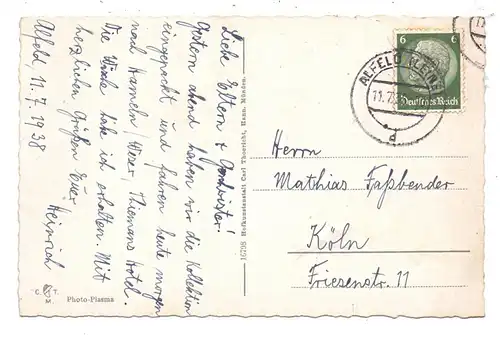 Alfeld, 11.7.1938
Liebe Eltern & Geschwister!
Gestern abend haben wir die Kollektion
eingepackt und fahren heute morgen
nach Hameln/Weser, Thiemans Hotel.
Die Wäsche habe ich erhalten. Mit
herzlichen Grüßen Euer
Heinrich
C. T.
M.
Photo-Plasma
16798 Hofkunstanstalt Carl Thoericht, Hann. Münden.
6 6
Deutsches Reich
ALFELD (LEINE)
11.7.
d
Herrn
Mathias Faßbender
Köln
Friesenstr. 11